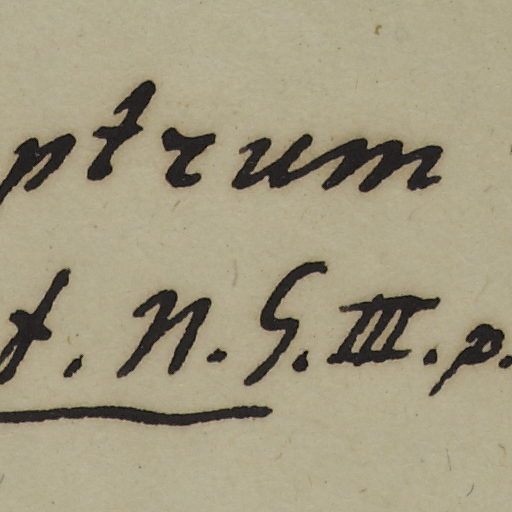 ptrum
t. N. G. III. p.